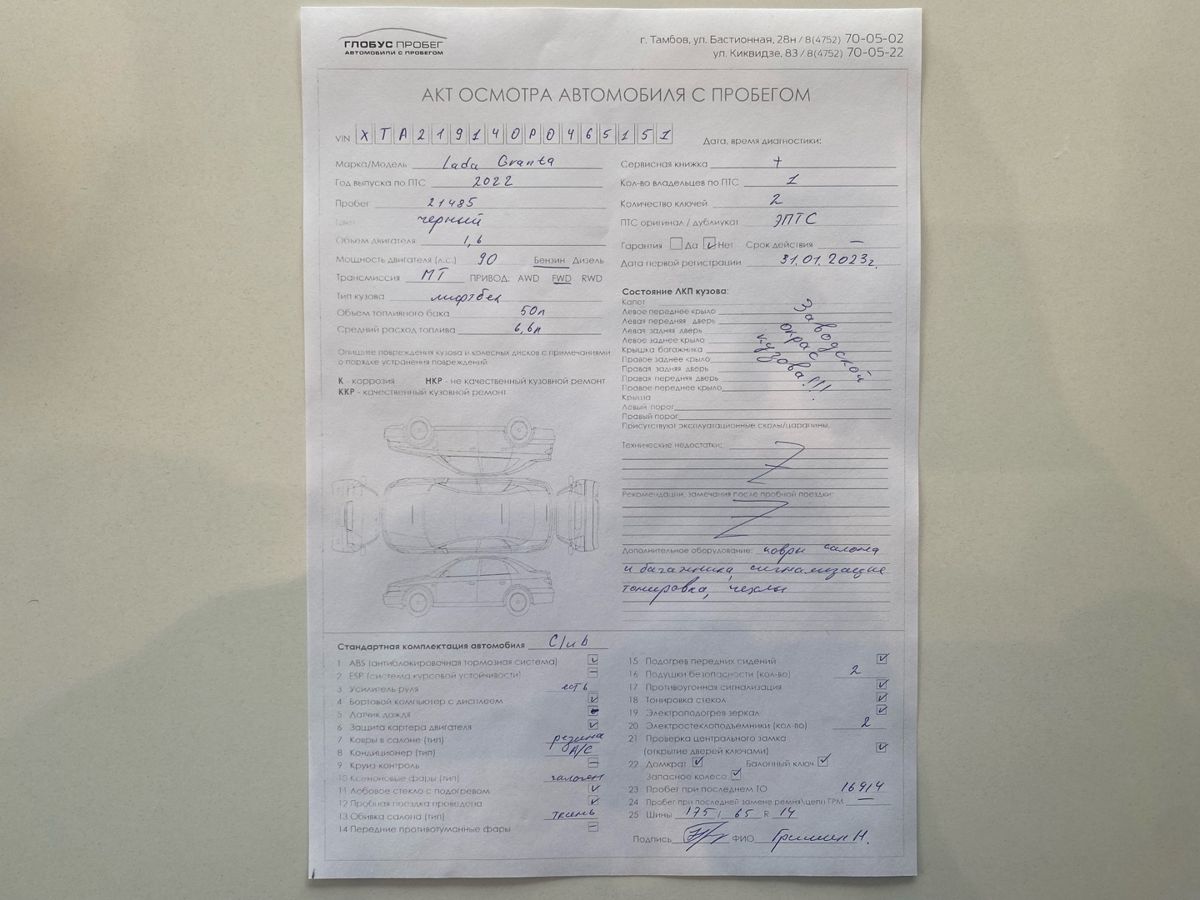 ГЛОБУС ПРОБЕГ
АВТОМОБИЛИ С ПРОБЕГОМ
г. Тамбов, ул. Бастионная, 28н / 8(4752) 70-05-02
ул. Киквидзе, 83 / 8(4752) 70-05-22
АКТ ОСМОТРА АВТОМОБИЛЯ С ПРОБЕГОМ
VIN XTA219140P0465151
Дата, время диагностики:
Марка/Модель Lada Granta
Год выпуска по ПТС 2022
Пробег 21485
Цвет черный
Объем двигателя 1,6
Мощность двигателя (л.с.) 90 Бензин Дизель
Трансмиссия МТ ПРИВОД: AWD FWD RWD
Тип кузова лифтбек
Объем топливного бака 50л
Средний расход топлива 6,6л
Сервисная книжка +
Кол-во владельцев по ПТС 1
Количество ключей 2
ПТС оригинал / дубликат ЭПТС
Гарантия Да Нет Срок действия —
Дата первой регистрации 31.01.2023г.
Опишите повреждения кузова и колесных дисков с примечаниями
о порядке устранения повреждений
К - коррозия НКР - не качественный кузовной ремонт
ККР - качественный кузовной ремонт
Состояние ЛКП кузова:
Капот
Левое переднее крыло
Левая передняя дверь
Левая задняя дверь
Левое заднее крыло
Крышка багажника
Правое заднее крыло
Правая задняя дверь
Правая передняя дверь
Правое переднее крыло
Крыша
Левый порог
Правый порог
Заводской
окрас
кузова!!!
Присутствуют эксплуатационные сколы/царапины.
Технические недостатки:
Рекомендации, замечания после пробной поездки:
Дополнительное оборудование: ковры салона
и багажника, сигнализация
тонировка, чехлы
Стандартная комплектация автомобиля Club
1 ABS (антиблокировочная тормозная система)
2 ESP (система курсовой устойчивости)
3 Усилитель руля есть
4 Бортовой компьютер с дисплеем
5 Датчик дождя
6 Защита картера двигателя
7 Ковры в салоне (тип) резина
8 Кондиционер (тип) A/C
9 Круиз контроль
10 Ксеноновые фары (тип) галоген
11 Лобовое стекло с подогревом
12 Пробная поездка проведена
13 Обивка салона (тип) ткань
14 Передние противотуманные фары
15 Подогрев передних сидений
16 Подушки безопасности (кол-во) 2
17 Противоугонная сигнализация
18 Тонировка стекол
19 Электроподогрев зеркал
20 Электростеклоподъемники (кол-во) 2
21 Проверка центрального замка
(открытие дверей ключами)
22 Домкрат Балонный ключ
Запасное колесо
23 Пробег при последнем ТО 16914
24 Пробег при последней замене ремня/цепи ГРМ —
25 Шины 175 / 65 R 14
Подпись ФИО Гришин Н.